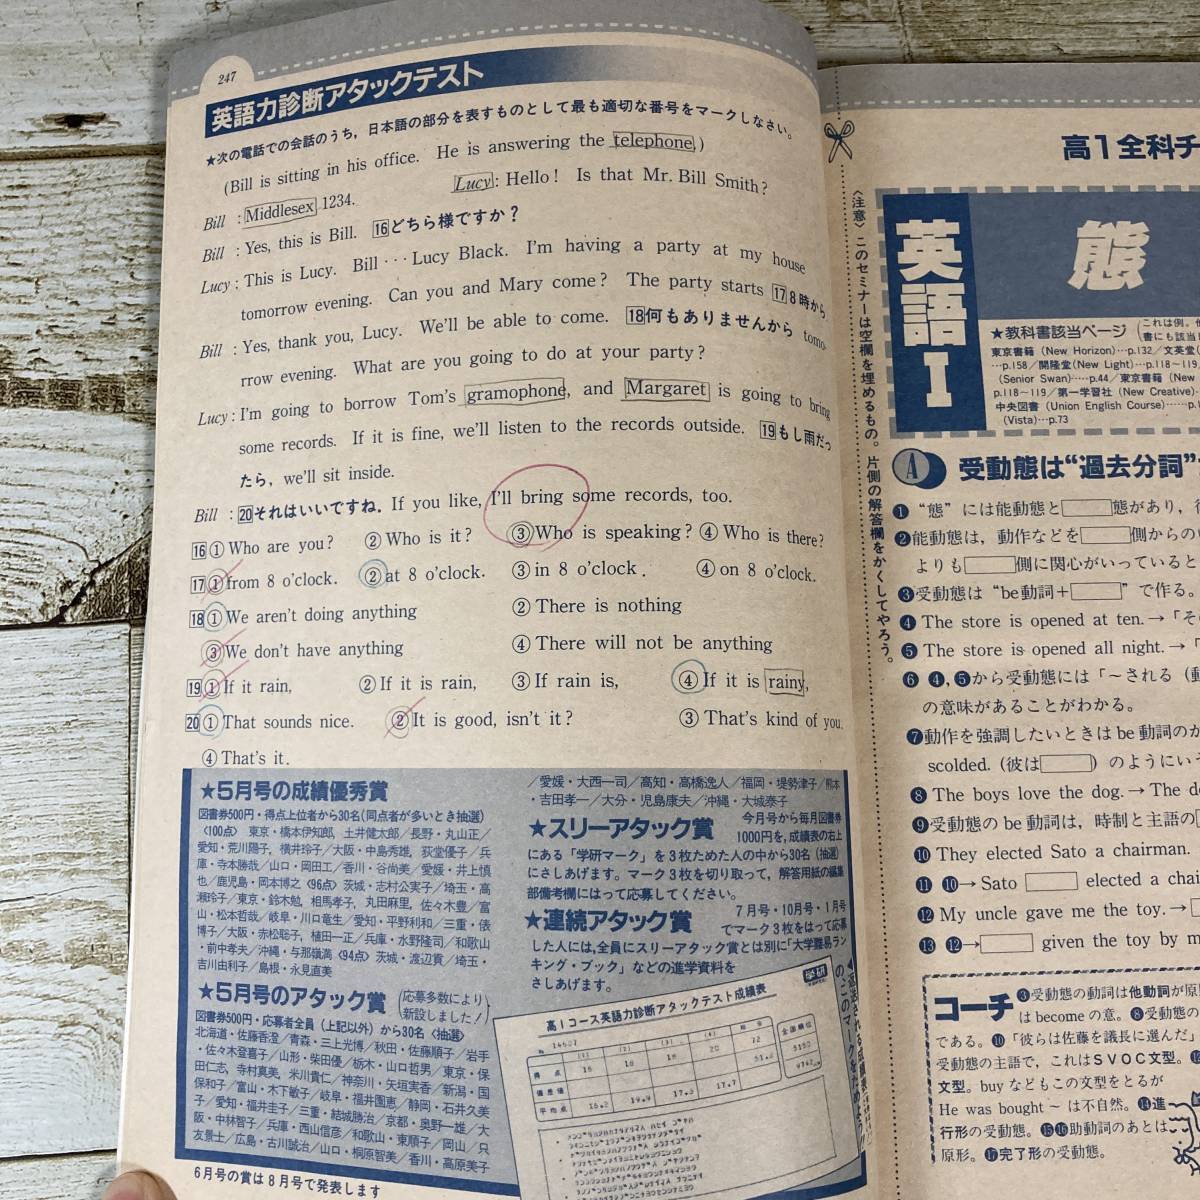 247
英語力診断アタックテスト
★次の電話での会話のうち，日本語の部分を表すものとして最も適切な番号をマークしなさい。
(Bill is sitting in his office. He is answering the telephone.)
Bill : Middlesex 1234.
Lucy: Hello! Is that Mr. Bill Smith?
Bill : Yes, this is Bill. 16どちら様ですか？
Lucy: This is Lucy. Bill･･･Lucy Black. I'm having a party at my house
tomorrow evening. Can you and Mary come? The party starts 17 8時から
Bill : Yes, thank you, Lucy. We'll be able to come. 18何もありませんから tomo-
rrow evening. What are you going to do at your party?
Lucy: I'm going to borrow Tom's gramophone, and Margaret is going to bring
some records. If it is fine, we'll listen to the records outside. 19もし雨だっ
たら, we'll sit inside.
Bill : 20それはいいですね. If you like, I'll bring some records, too.
16 ①Who are you? ②Who is it? ③Who is speaking? ④Who is there?
17 ①from 8 o'clock. ②at 8 o'clock. ③in 8 o'clock. ④on 8 o'clock.
18 ①We aren't doing anything ②There is nothing
③We don't have anything ④There will not be anything
19 ①If it rain, ②If it is rain, ③If rain is, ④If it is rainy,
20 ①That sounds nice. ②It is good, isn't it? ③That's kind of you.
④That's it.
★5月号の成績優秀賞
図書券500円・得点上位者から30名(同点者が多いとき抽選)
〈100点〉 東京・橋本伊知郎 土井健太郎／長野・丸山正／
愛知・荒川陽子，横井玲子／大阪・中島秀雄，荻堂優子／兵
庫・寺本勝哉／山口・岡田工／香川・谷尚美／愛媛・井上慎
也／鹿児島・岡本博之〈96点〉茨城・志村公実子／埼玉・高
瀬玲子／東京・鈴木勉，相馬孝子，丸田麻里，佐々木豊／富
山・松本哲哉／岐阜・川口竜生／愛知・平野利和／三重・俵
博子／大阪・赤松聡子，植田一正／兵庫・水野隆司／和歌山
・前中孝夫／沖縄・与那嶺満〈94点〉茨城・渡辺貴／埼玉・
吉川由利子／島根・永見直美
★5月号のアタック賞
(応募多数により
新設しました！)
図書券500円・応募者全員（上記以外）から30名〈抽選〉
北海道・佐藤香澄／青森・三上光博／秋田・佐藤順子／岩手
・佐々木登喜子／山形・柴田優／栃木・山口哲男／東京・保
田仁志，寺村真美，米川貴仁／神奈川・矢垣実香／新潟・国
保和子／富山・木下敏子／岐阜・福井園恵／静岡・石井久美
子／愛知・福井圭子／三重・結城勝治／京都・奥野一雄／大
阪・中林智子／兵庫・西山信彦／和歌山・東順子／岡山・只
友景士／広島・古川誠治／山口・桐原智美／香川・高原美子
6月号の賞は8月号で発表します
／愛媛・大西一司／高知・高橋逸人／福岡・堤勢津子／熊本
・吉田孝一／大分・児島康夫／沖縄・大城泰子
★スリーアタック賞
今月号から毎月図書券
1000円を，成績表の右上
にある「学研マーク」を3枚ためた人の中から30名（抽選）
にさしあげます。マーク3枚を切り取って，解答用紙の編集
部備考欄にはって応募してください。
★連続アタック賞
7月号・10月号・1月号
でマーク3枚をはって応募
した人には，全員にスリーアタック賞とは別に「大学難易ラン
キング・ブック」などの進学資料を
さしあげます。
学研
高1コース英語力診断アタックテスト成績表
得点
偏差値
平均点
全国順位
〈注意〉このセミナーは空欄を埋めるもの。片側の解答欄をかくしてやろう。
高1全科チ
英語I
態
★教科書該当ページ
東京書籍（New Horizon）…p.132／文英堂(
…p.158／開隆堂(New Light)…p.118〜119
(Senior Swan)……p.44／東京書籍（New
p.118〜119／第一学習社（New Creative）
中央図書（Union English Course）
(Vista)…p.73
A 受動態は“過去分詞”
❶“態”には能動態と 態があり，
❷能動態は，動作などを 側からの
よりも 側に関心がいっていると
❸受動態は“be動詞＋ ”で作る。
❹ The store is opened at ten.→「そ
❺ The store is opened all night.→「
❻ ❹,❺から受動態には「〜される（動
の意味があることがわかる。
❼動作を強調したいときは be 動詞のか
scolded. (彼は ) のようにい
❽ The boys love the dog.→ The do
❾受動態の be動詞は，時制と主語の
❿ They elected Sato a chairman.
⓫ ❿→Sato elected a chai
⓬ My uncle gave me the toy.→
⓭ ⓬→ given the toy by m
コーチ
❸受動態の動詞は他動詞が原
はbecomeの意。❽受動態の
である。❿「彼らは佐藤を議長に選んだ」
受動態の主語で，これはＳＶＯＣ文型。
文型。buy などもこの文型をとるが
He was bought 〜 は不自然。⓮進
行形の受動態。⓯⓰助動詞のあとは
原形。⓱完了形の受動態。